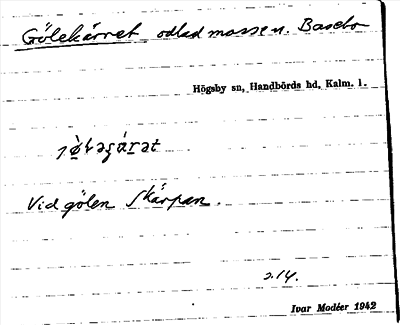 Gölekärret odlad mosse u. Basebo
Högsby sn, Handbörds hd, Kalm. l.
Vid gölen Skärpan.
2.14.
Ivar Modéer 1942